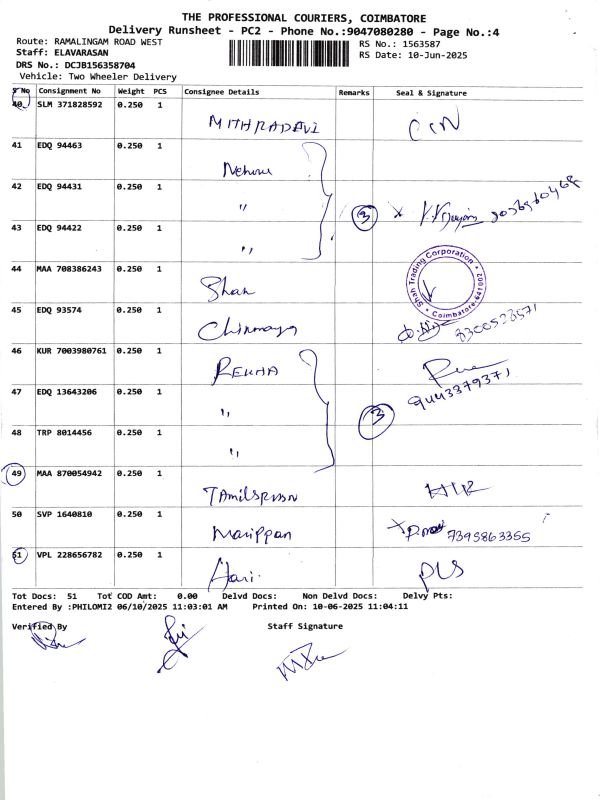 THE PROFESSIONAL COURIERS, COIMBATORE
Delivery Runsheet - PC2 - Phone No.:9047080280 - Page No.:4
Route: RAMALINGAM ROAD WEST
RS No.: 1563587
Staff: ELAVARASAN
RS Date: 10-Jun-2025
DRS No.: DCJB156358704
Vehicle: Two Wheeler Delivery
S No Consignment No Weight PCS Consignee Details Remarks Seal & Signature
40 SLM 371828592 0.250 1 MITHRADAVI
41 EDQ 94463 0.250 1 Nehru
42 EDQ 94431 0.250 1 " 3 x
43 EDQ 94422 0.250 1 "
44 MAA 708386243 0.250 1 Shah Shah Trading Corporation * Coimbatore-641 002 *
45 EDQ 93574 0.250 1 Chinmaya
46 KUR 7003980761 0.250 1 REKHA
47 EDQ 13643206 0.250 1 " 3 9443379371
48 TRP 8014456 0.250 1 "
49 MAA 870054942 0.250 1
50 SVP 1640810 0.250 1 Marippan x 7395863355
51 VPL 228656782 0.250 1 Hari PLS
Tot Docs: 51 Tot COD Amt: 0.00 Delvd Docs: Non Delvd Docs: Delvy Pts:
Entered By :PHILOMI2 06/10/2025 11:03:01 AM Printed On: 10-06-2025 11:04:11
Verified By Staff Signature